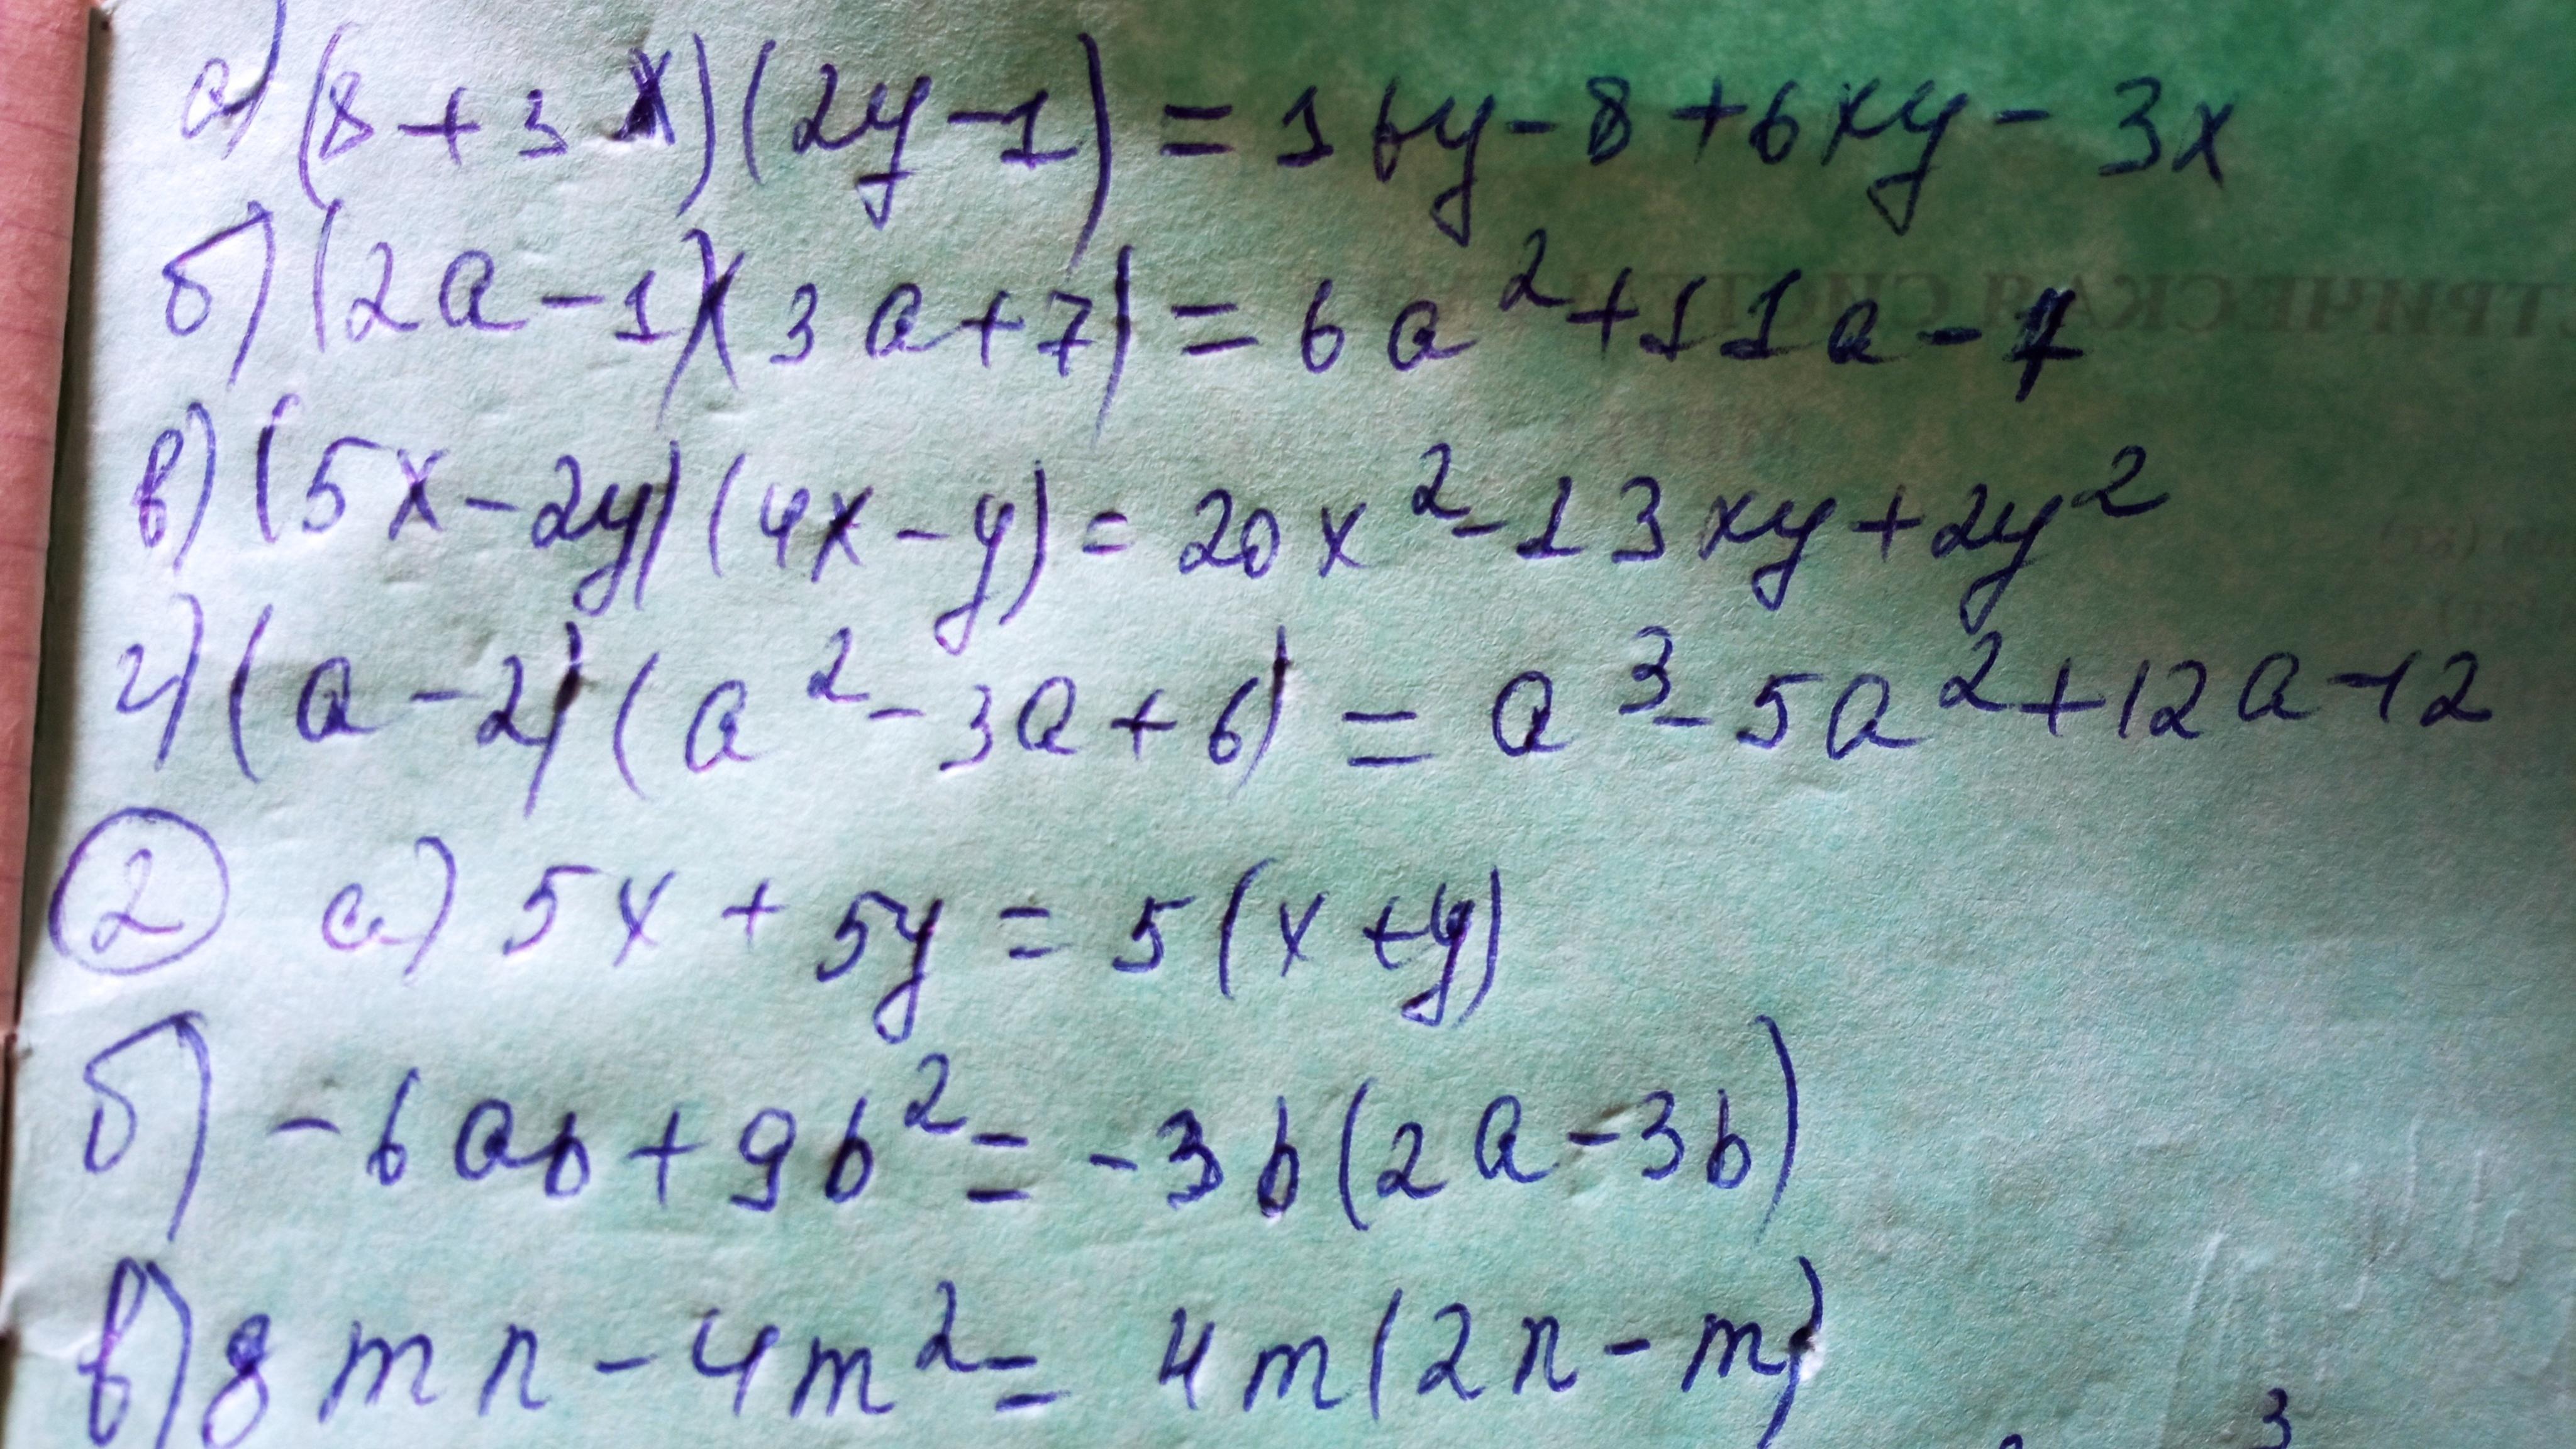 а) (8+3x)(2y-1) = 16y-8+6xy-3x
б) (2a-1)(3a+7) = 6a²+11a-7
в) (5x-2y)(4x-y) = 20x²-13xy+2y²
г) (a-2)(a²-3a+6) = a³-5a²+12a-12
② а) 5x+5y = 5(x+y)
б) -6ab+9b² = -3b(2a-3b)
в) 8mn-4m² = 4m(2n-m)
3